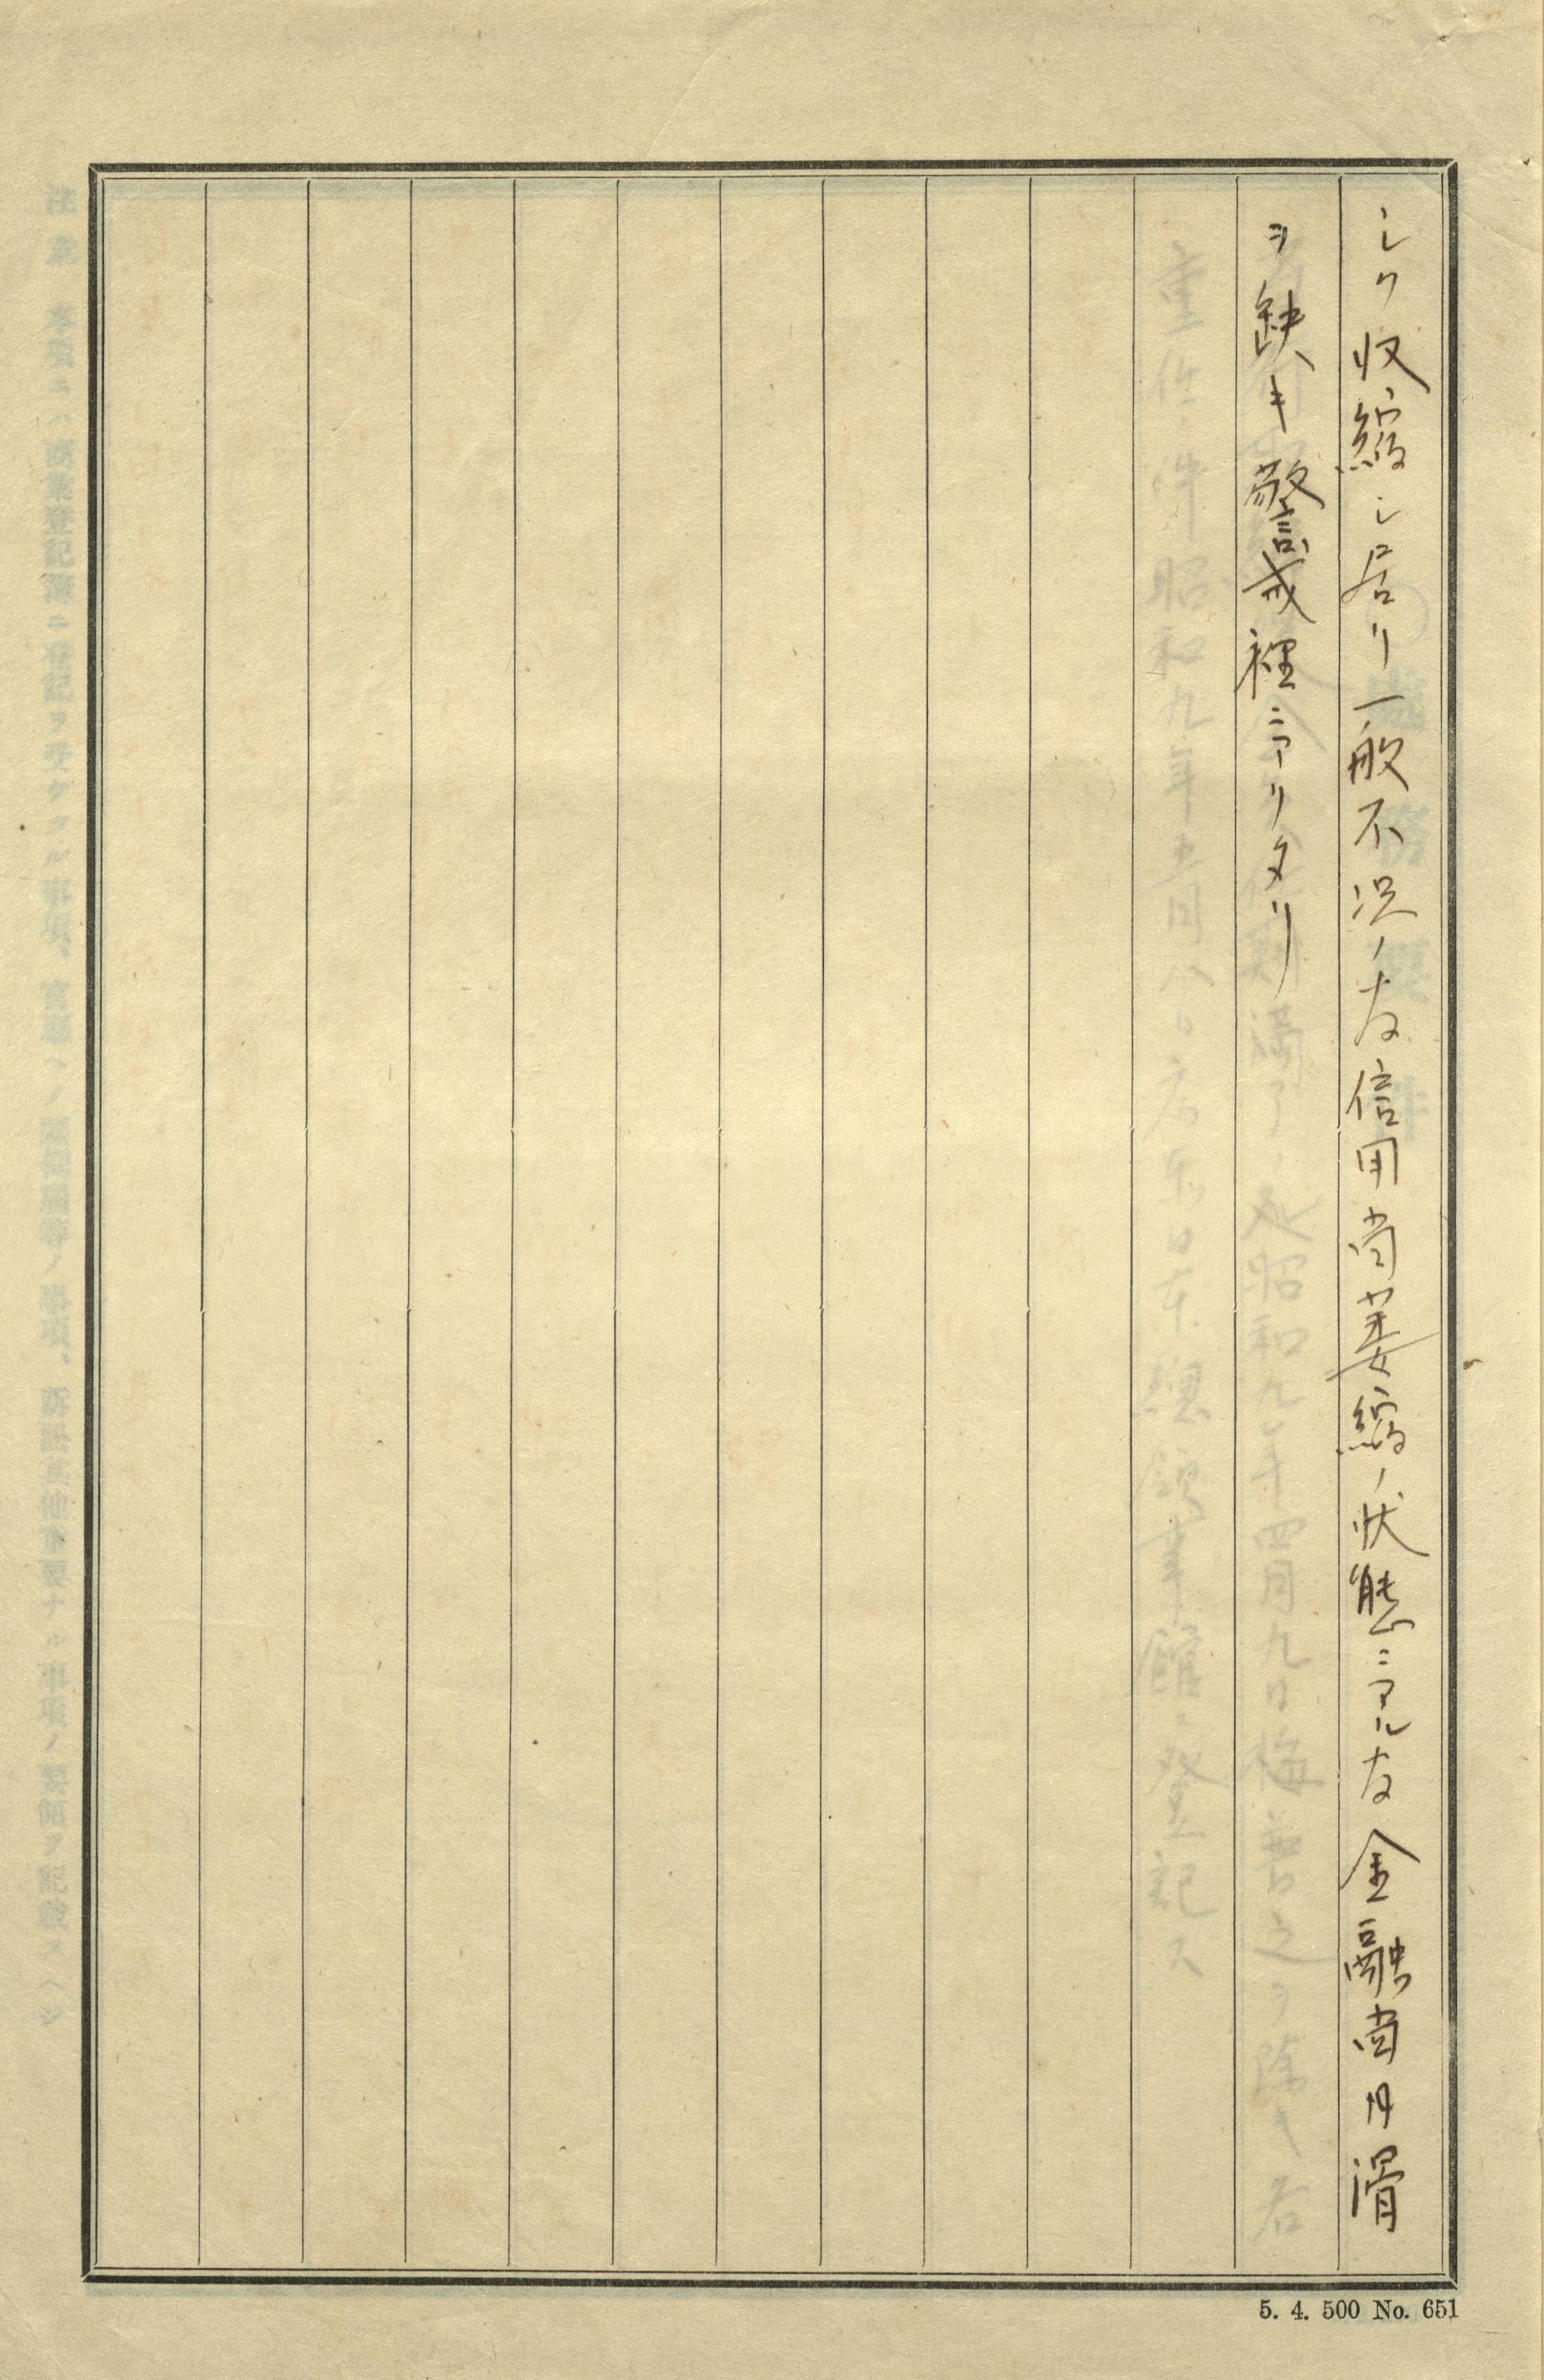 シク収縮シ居リ一般不況ノ為信用尚萎縮ノ状態ニアル為金融尚円滑
ヲ缺キ警戒裡ニアリタリ
5. 4. 500 No. 651